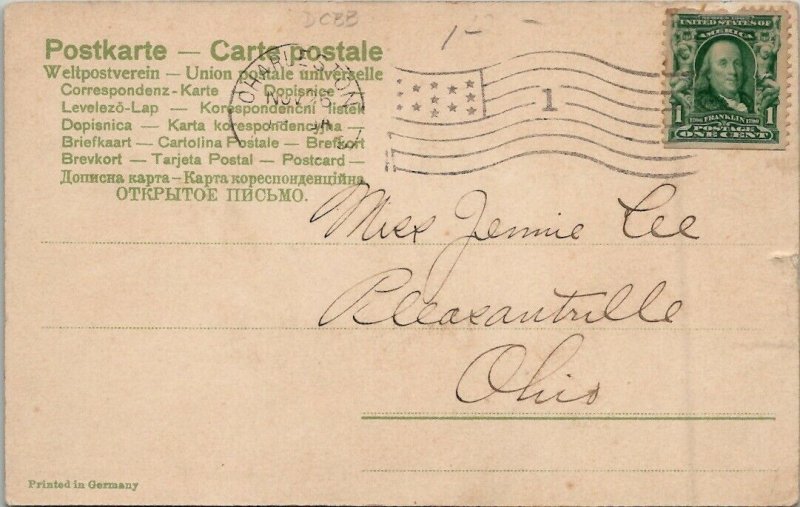 DCBB
Postkarte — Carte postale
Weltpostverein — Union postale universelle
Correspondenz-Karte — Dopisnice
Levelező-Lap — Korespondenční lístek
Dopisnica — Karta korespondencyjna —
Briefkaart — Cartolina Postale — Brefkort
Brevkort — Tarjeta Postal — Postcard —
Дописна карта — Карта кореспонденційна
ОТКРЫТОЕ ПИСЬМО.
NOV 26
1
UNITED STATES OF
AMERICA
1 FRANKLIN 1
POSTAGE
ONE CENT
Miss Jennie Lee
Pleasantville
Ohio
Printed in Germany